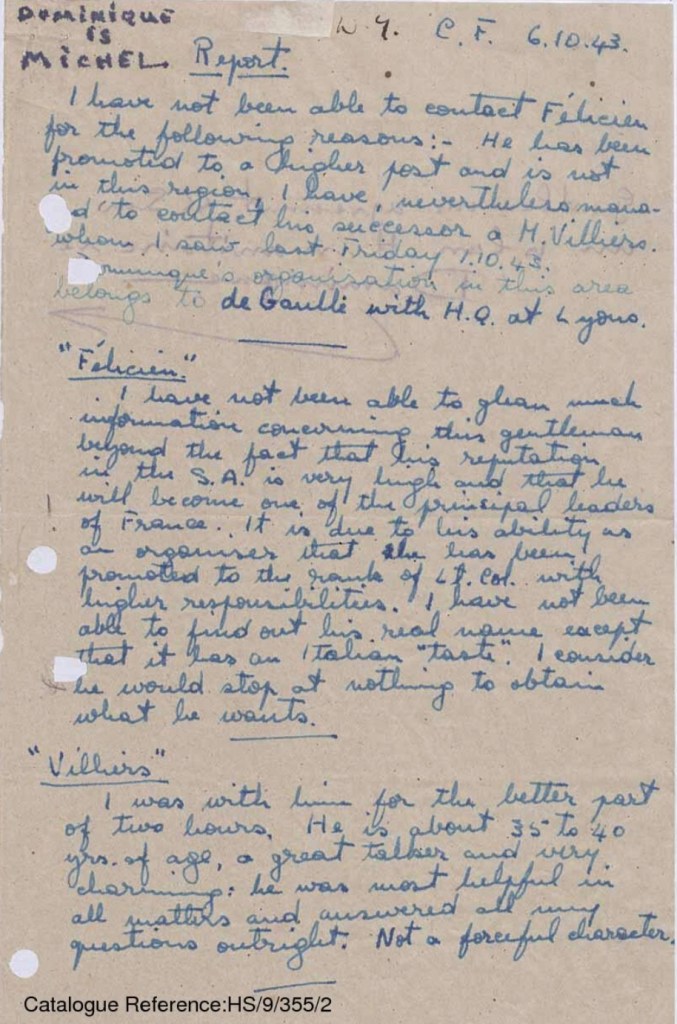 DOMINIQUE
is
MICHEL.
D.Y. C.F. 6.10.43.
Report.
I have not been able to contact Félicien
for the following reasons:- He has been
promoted to a higher post and is not
in this region. I have, nevertheless mana-
d to contact his successor a M. Villiers.
whom I saw last Friday 1.10.43.
minique's organisation in this area
belongs to de Gaulle with H.Q. at Lyons.
"Félicien."
I have not been able to glean much
information concerning this gentleman
beyond the fact that his reputation
in the S.A. is very high and that he
will become one of the principal leaders
of France. It is due to his ability as
an organiser that he has been
promoted to the rank of Lt. Col. with
higher responsibilities. I have not been
able to find out his real name except
that it has an Italian "taste". I consider
he would stop at nothing to obtain
what he wants.
"Villiers"
I was with him for the better part
of two hours. He is about 35 to 40
yrs. of age, a great talker and very
charming: he was most helpful in
all matters and answered all my
questions outright. Not a forceful character.
Catalogue Reference:HS/9/355/2